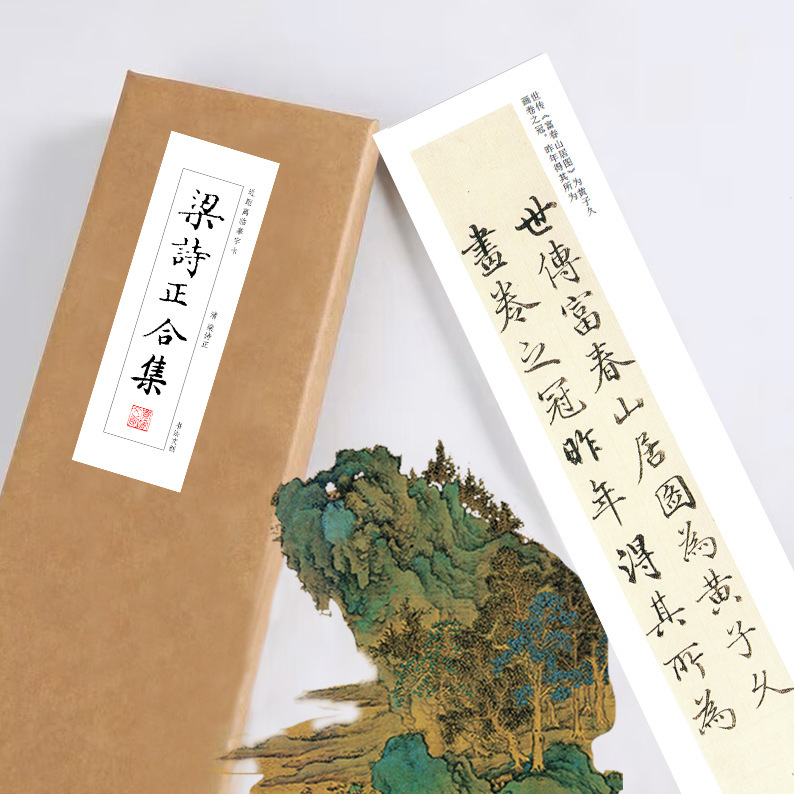 近距离临摹字卡
梁詩正合集
清 梁诗正
书法文创
世传《富春山居图》为黄子久
画卷之冠，昨年得其所为
世傳富春山居圖為黃子久
畫卷之冠昨年得其所為